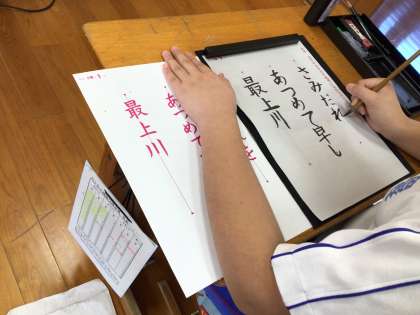 さみだれ
あつめて早し
最上川
を
あつめて
最上川